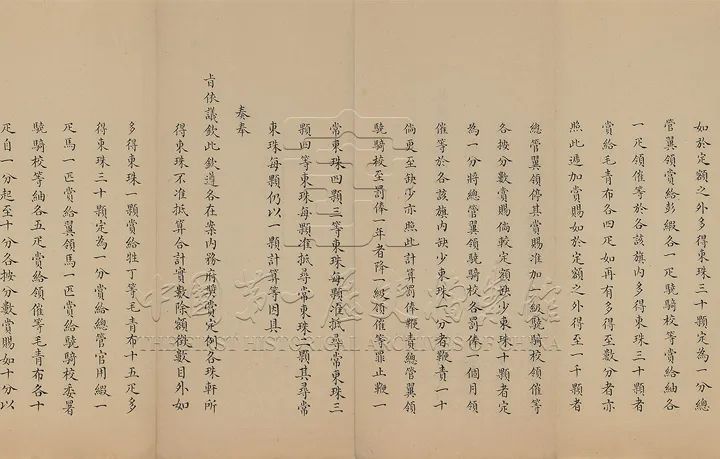 如於定額之外多得東珠三十顆定為一分總
管翼領賞給彭緞各一疋驍騎校等賞給紬各
一疋領催等於各該旗內多得東珠三十顆者
賞給毛青布各四疋如再有多得至數分者亦
照此遞加賞賜如於定額之外得至一千顆者
總管翼領停其賞賜准加一級驍騎校領催等
各按分數賞賜倘較定額缺少東珠十顆者定
為一分將總管翼領驍騎校各罰俸一個月領
催等於各該旗內缺少東珠一分者鞭責一十
倘更至缺少亦照此計算罰俸鞭責總管翼領
驍騎校至罰俸一年者降一級領催等罪止鞭一
常東珠四顆三等東珠每顆准抵尋常東珠三
顆四等東珠每顆准抵尋常東珠二顆其尋常
東珠每顆仍以一顆計算等因具
奏奉
旨依議欽此欽遵各在案內務府奬賞定例各珠軒所
得東珠不准抵算合計實數除額徵數目外如
多得東珠一顆賞給牲丁等毛青布十五疋多
得東珠三十顆定為一分賞給總管官用緞一
疋馬一匹賞給翼領馬一匹賞給驍騎校委署
驍騎校等紬各五疋賞給領催等毛青布各十
疋自一分起至十分各按分數賞賜如十分以
中國第一歷史檔案館
THE FIRST HISTORICAL ARCHIVES OF CHINA